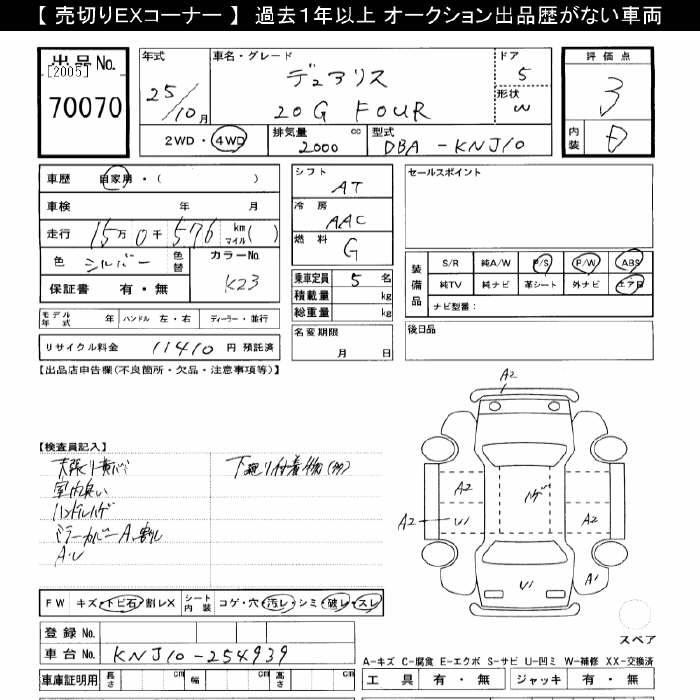 【 売切りEXコーナー 】 過去1年以上 オークション出品歴がない車両
出品No.
[2005]
70070
年式
25/10月
車名・グレード
デュアリス
20G FOUR
ドア
5
形状
W
評価点
3
内装
D
2WD・4WD
排気量
2000 cc
型式
DBA-KNJ10
車歴 自家用・( )
車検 年 月
走行 15万0千576 km マイル( )
色 シルバー 色替
カラーNo.
K23
保証書 有・無
シフト
AT
冷房
AAC
燃料
G
乗車定員 5 名
積載量 kg
総重量 kg
セールスポイント
装備品
S/R 純A/W P/S P/W ABS
純TV 純ナビ 革シート 外ナビ エアB
ナビ型番:
モデル年式 年 ハンドル 左・右 ディーラー・並行
リサイクル料金 11410 円 預託済
名変期限
月 日
後日品
【出品店申告欄(不良箇所・欠品・注意事項等)】
【検査員記入】
天張り黄バミ
室内臭い
ハンドルハゲ
ミラーカバーA、割レ
A・U
下廻り付着物(多)
A2
A2
A2
U1
ハゲ
A2
U1
A1
FW キズ・トビ石・割レX シート内装 コゲ・穴・汚レ・シミ・破レ・スレ
登録No.
車台No. KNJ10-254939
スペア
A-キズ C-腐食 E-エクボ S-サビ U-凹ミ W-補修 XX-交換済
車庫証明用 長さ cm 幅 cm 高さ cm
工具 有・無 ジャッキ 有・無